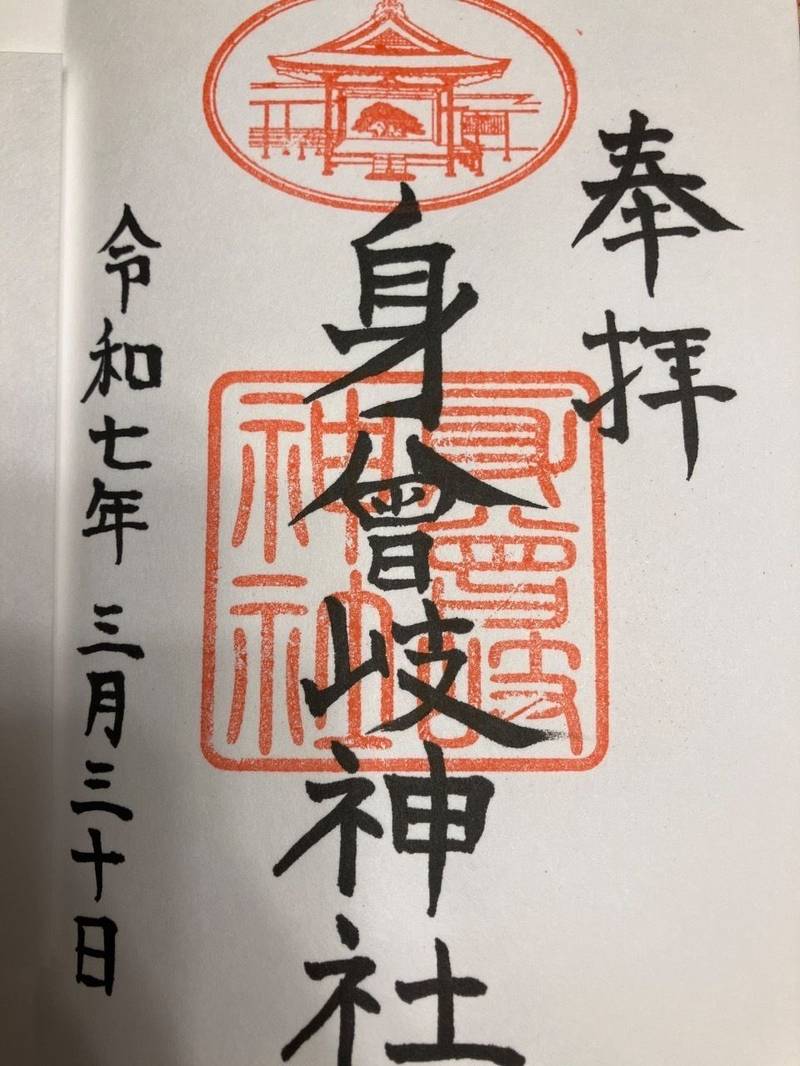 奉拝
身曾岐神社
身曾岐神社
令和七年三月三十日